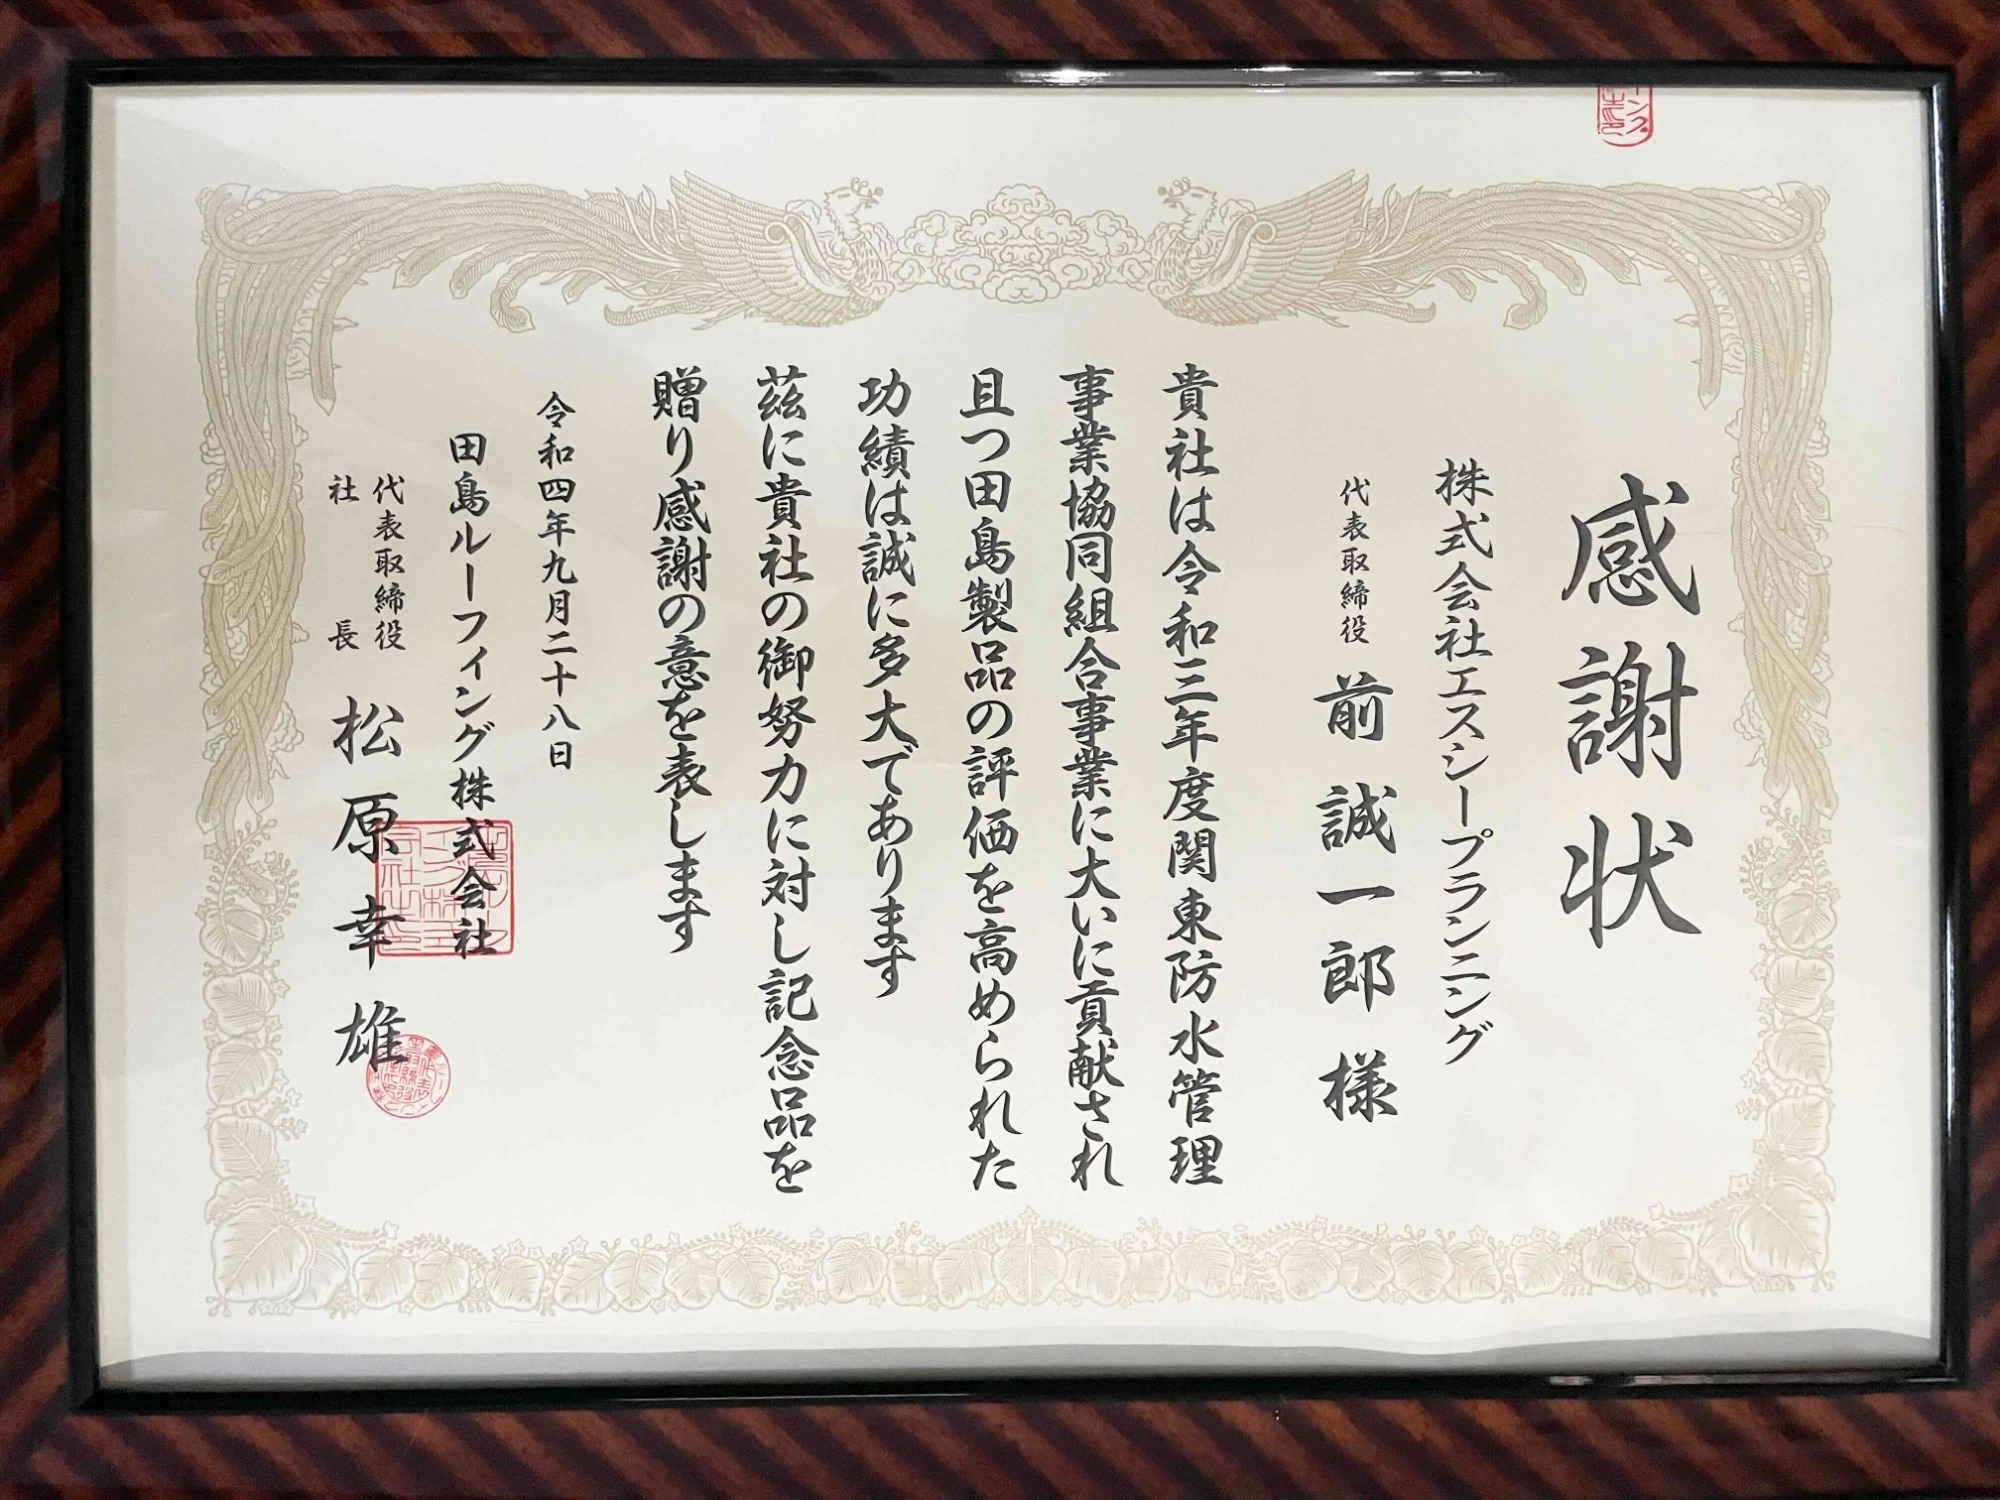 感謝状
株式会社エスシープランニング
代表取締役 前誠一郎様
貴社は令和三年度関東防水管理
事業協同組合事業に大いに貢献され
且つ田島製品の評価を高められた
功績は誠に多大であります
茲に貴社の御努力に対し記念品を
贈り感謝の意を表します
令和四年九月二十八日
田島ルーフィング株式会社
代表取締役
社長 松原幸雄